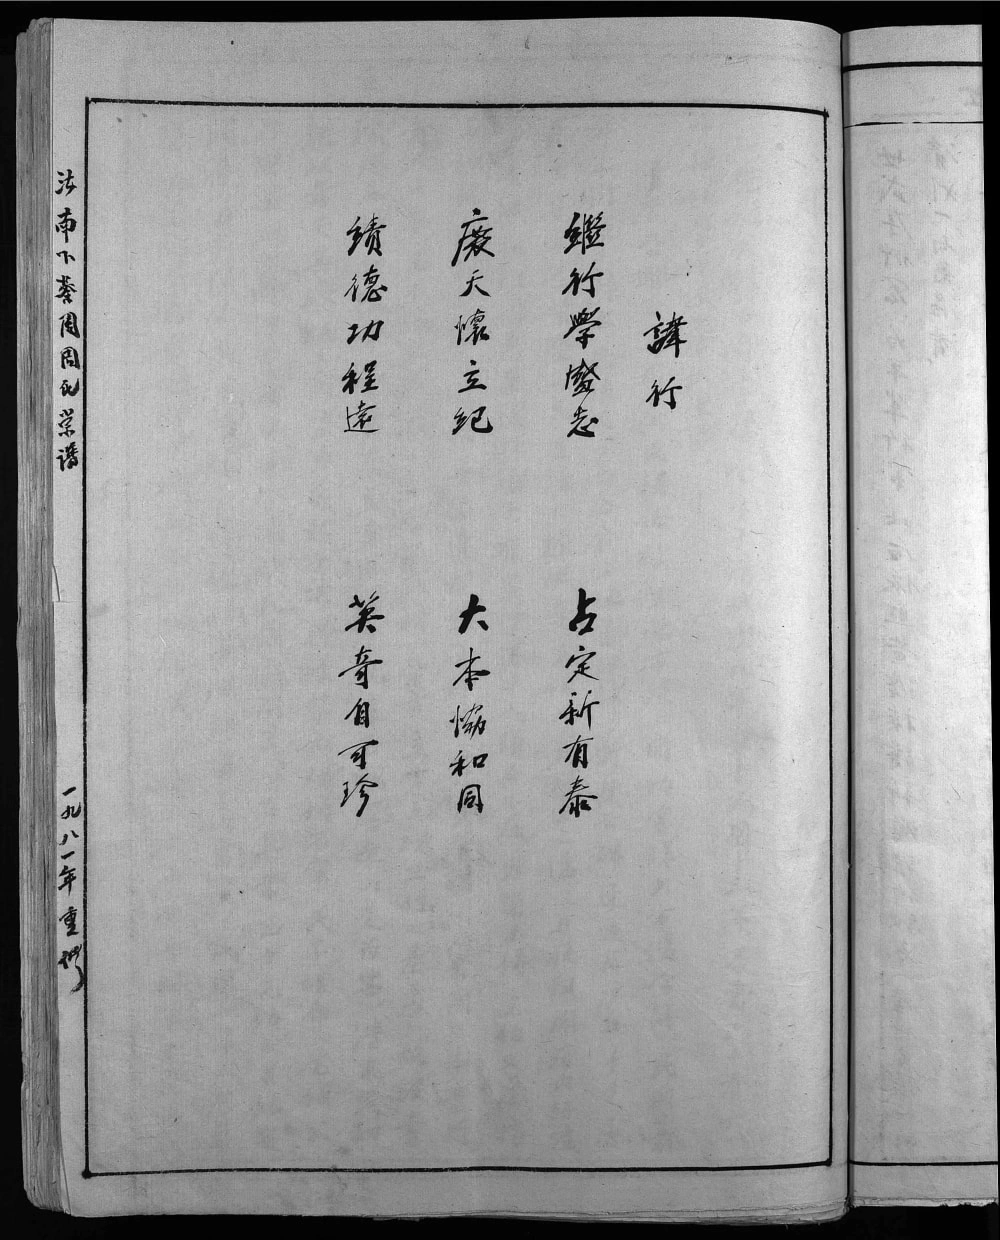 諱行
鑑行學盛志
占定新有泰
廢天懷立紀
大本協和同
績德功程遠
英奇自可珍
南下
周氏宗譜
一九八一年重修